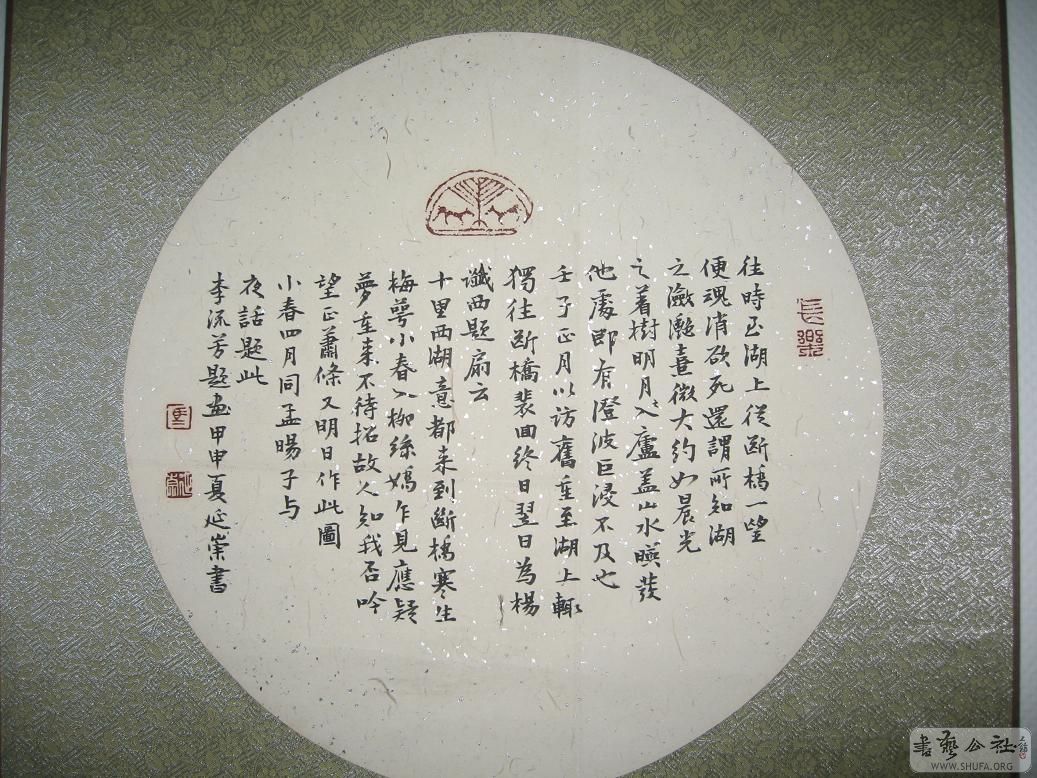 長樂
往時至湖上從斷橋一望
便魂消欲死還謂所知湖
之瀲灧熹微大約如晨光
之着樹明月入廬盖山水暎發
他處即有澄波巨浸不及也
壬子正月以访舊重至湖上輒
獨往斷橋裴回终日翌日為楊
讖西题扇云
十里西湖意都来到斷橋寒生
梅萼小春入柳絲嬌乍見應疑
夢重来不待招故人知我否吟
望正蕭條又明日作此圖
小春四月同孟暘子与
夜話題此
李流芳题画甲申夏延崇書
書藝公社
WWW.SHUFA.ORG